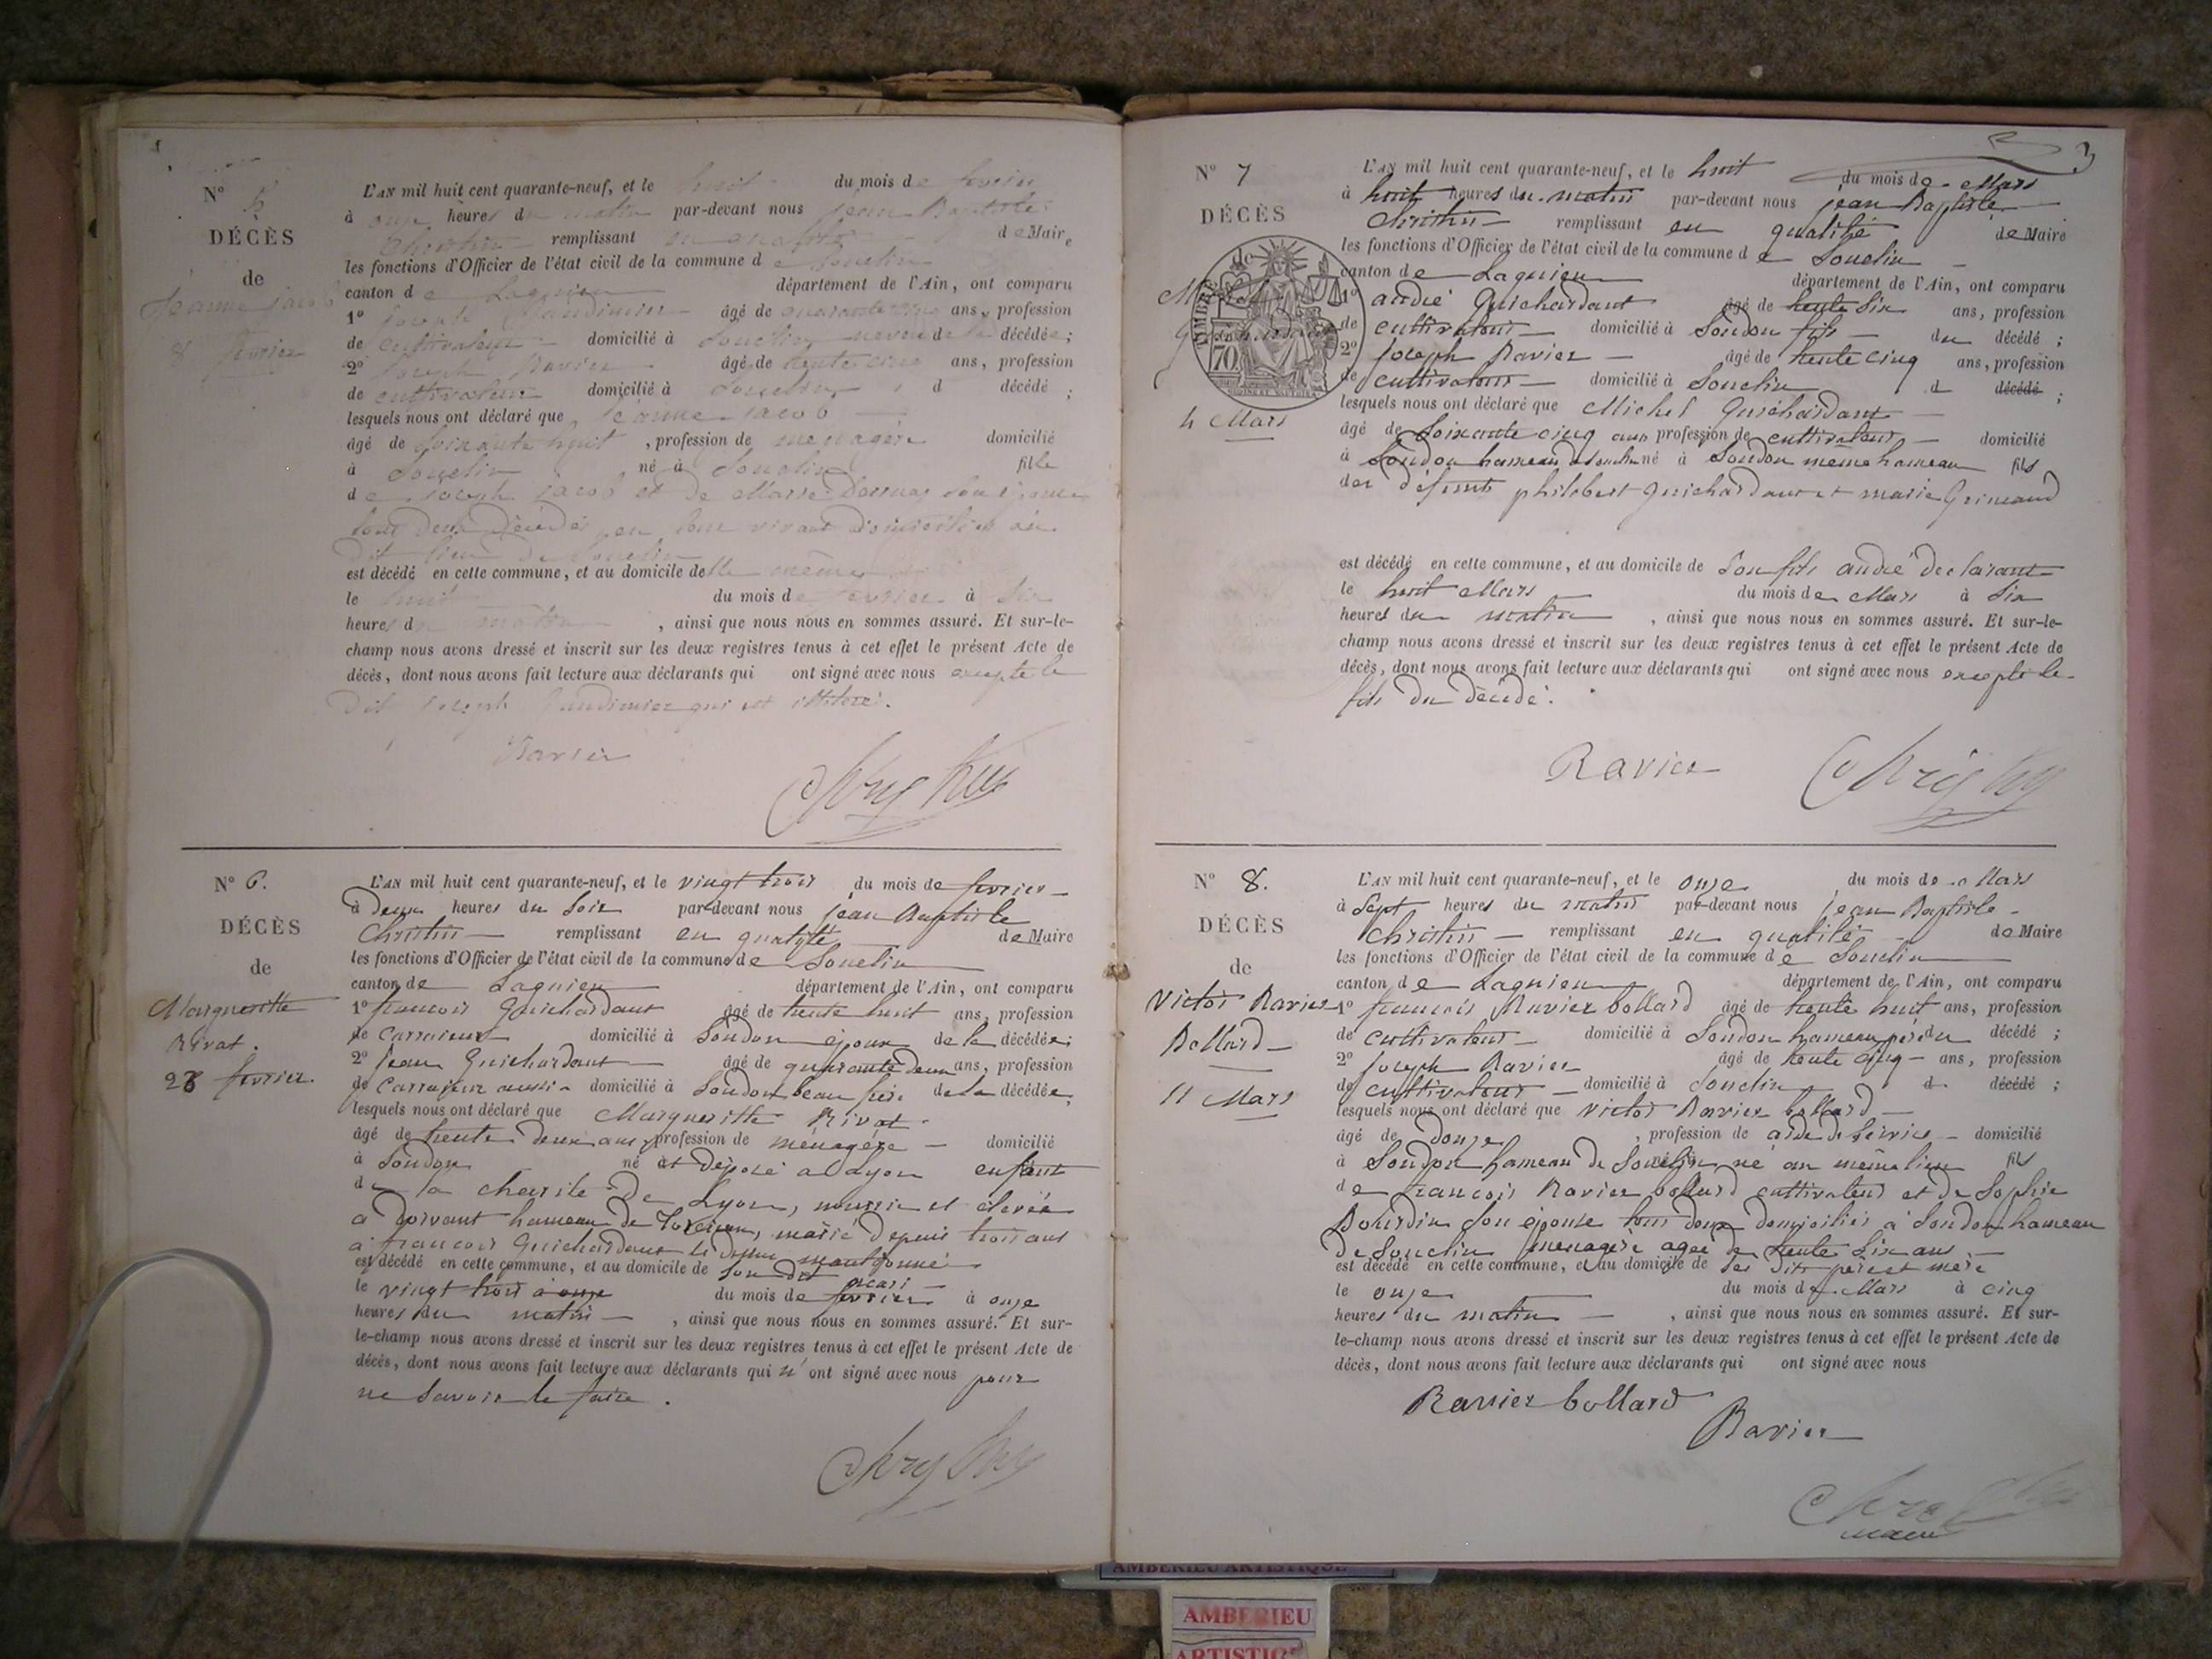 N° 5
DÉCÈS
de
Jeanne Jacob
8 février
L'AN mil huit cent quarante-neuf, et le huit du mois de février
à onze heures du matin par-devant nous jean Baptiste
Christin remplissant en qualité de Maire
les fonctions d'Officier de l'état civil de la commune de Souclin
canton de Lagnieu département de l'Ain, ont comparu
1° joseph âgé de quarante cinq ans, profession
de cultivateur domicilié à Souclin neveu de la décédée;
2° joseph Ravier âgé de trente cinq ans, profession
de cultivateur domicilié à Souclin d décédé ;
lesquels nous ont déclaré que jeanne jacob
âgé de soixante huit , profession de menagère domicilié
à Souclin né à Souclin fille
de joseph jacob et de Marie son épouse
tous deux décédés en leur vivant domiciliés au
dit lieu de Souclin
est décédé en cette commune, et au domicile de elle même
le huit du mois de fevrier à six
heures du matin , ainsi que nous nous en sommes assuré. Et sur-le-
champ nous avons dressé et inscrit sur les deux registres tenus à cet effet le présent Acte de
décès, dont nous avons fait lecture aux déclarants qui ont signé avec nous excepté le
dit joseph qui est illitéré.
Ravier
Christin
N° 6.
DÉCÈS
de
Margueritte
Rivat.
23 fevrier.
L'AN mil huit cent quarante-neuf, et le vingt trois du mois de fevrier
à deux heures du soir par-devant nous jean Baptiste
Christin remplissant en qualité de Maire
les fonctions d'Officier de l'état civil de la commune de Souclin
canton de Lagnieu département de l'Ain, ont comparu
1° francois Guichardant âgé de trente huit ans, profession
de carraieur domicilié à Soudon époux de la décédée;
2° jean Guichardant âgé de quarante deux ans, profession
de carrayeur aussi domicilié à Soudon beau frere de la décédée,
lesquels nous ont déclaré que Margueritte Rivat
âgé de trente deux ans, profession de ménagère domicilié
à Soudon né et déposé a Layon enfant
de la charité de Lyon, nourrie et elevée
a dorvant hameau de Torcieu, marié depuis trois ans
a francois Guichardant le dessus mantionné
est décédé en cette commune, et au domicile de son dit mari
le vingt trois à onze du mois de fevrier à onze
heures du matin , ainsi que nous nous en sommes assuré. Et sur-
le-champ nous avons dressé et inscrit sur les deux registres tenus à cet effet le présent Acte de
décès, dont nous avons fait lecture aux déclarants qui n'ont signé avec nous pour
ne savoir le faire.
Christin
3
N° 7
DÉCÈS
de
4 Mars
L'AN mil huit cent quarante-neuf, et le huit du mois de Mars
à huit heures du matin par-devant nous jean Baptiste
Christin remplissant en qualité de Maire
les fonctions d'Officier de l'état civil de la commune de Souclin
canton de Lagnieu département de l'Ain, ont comparu
1° andré Guichardant âgé de trente six ans, profession
de cultivateur domicilié à Soudon fils du décédé ;
2° joseph Ravier âgé de trente cinq ans, profession
de cultivateur domicilié à Souclin d décédé ;
lesquels nous ont déclaré que Michel Guichardant
âgé de soixante cinq ans profession de cultivateur domicilié
à Soudon hameau de Souclin né à Soudon même hameau fils
des defunts philibert Guichardant et marie Grimaud
est décédé en cette commune, et au domicile de son fils andré declarant
le huit Mars du mois de Mars à six
heures du matin , ainsi que nous nous en sommes assuré. Et sur-le-
champ nous avons dressé et inscrit sur les deux registres tenus à cet effet le présent Acte de
décès, dont nous avons fait lecture aux déclarants qui ont signé avec nous excepté le
fils du décédé.
Ravier
Christin
N° 8.
DÉCÈS
de
Victor Ravier
Bollard
11 Mars
L'AN mil huit cent quarante-neuf, et le onze du mois de Mars
à sept heures du matin par-devant nous jean Baptiste
Christin remplissant en qualité de Maire
les fonctions d'Officier de l'état civil de la commune de Souclin
canton de Lagnieu département de l'Ain, ont comparu
1° francois Ravier bollard âgé de trente huit ans, profession
de cultivateur domicilié à Soudon hameau père du décédé ;
2° joseph Ravier âgé de trente cinq ans, profession
de cultivateur domicilié à Souclin d décédé ;
lesquels nous ont déclaré que victor Ravier bollard
âgé de douze , profession de aide de service domicilié
à Soudon hameau de Souclin né au même lieu fils
de francois Ravier bollard cultivateur et de Sophie
Bourdin son épouse tous deux domiciliés à Soudon hameau
de Souclin menagère agée de trente six ans
est décédé en cette commune, et au domicile de ses dits père et mère
le onze du mois de Mars à cinq
heures du matin , ainsi que nous nous en sommes assuré. Et sur-
le-champ nous avons dressé et inscrit sur les deux registres tenus à cet effet le présent Acte de
décès, dont nous avons fait lecture aux déclarants qui ont signé avec nous
Ravier bollard
Ravier
Christin
maire
AMBERIEU ARTISTIQUE
AMBERIEU
ARTISTIQUE